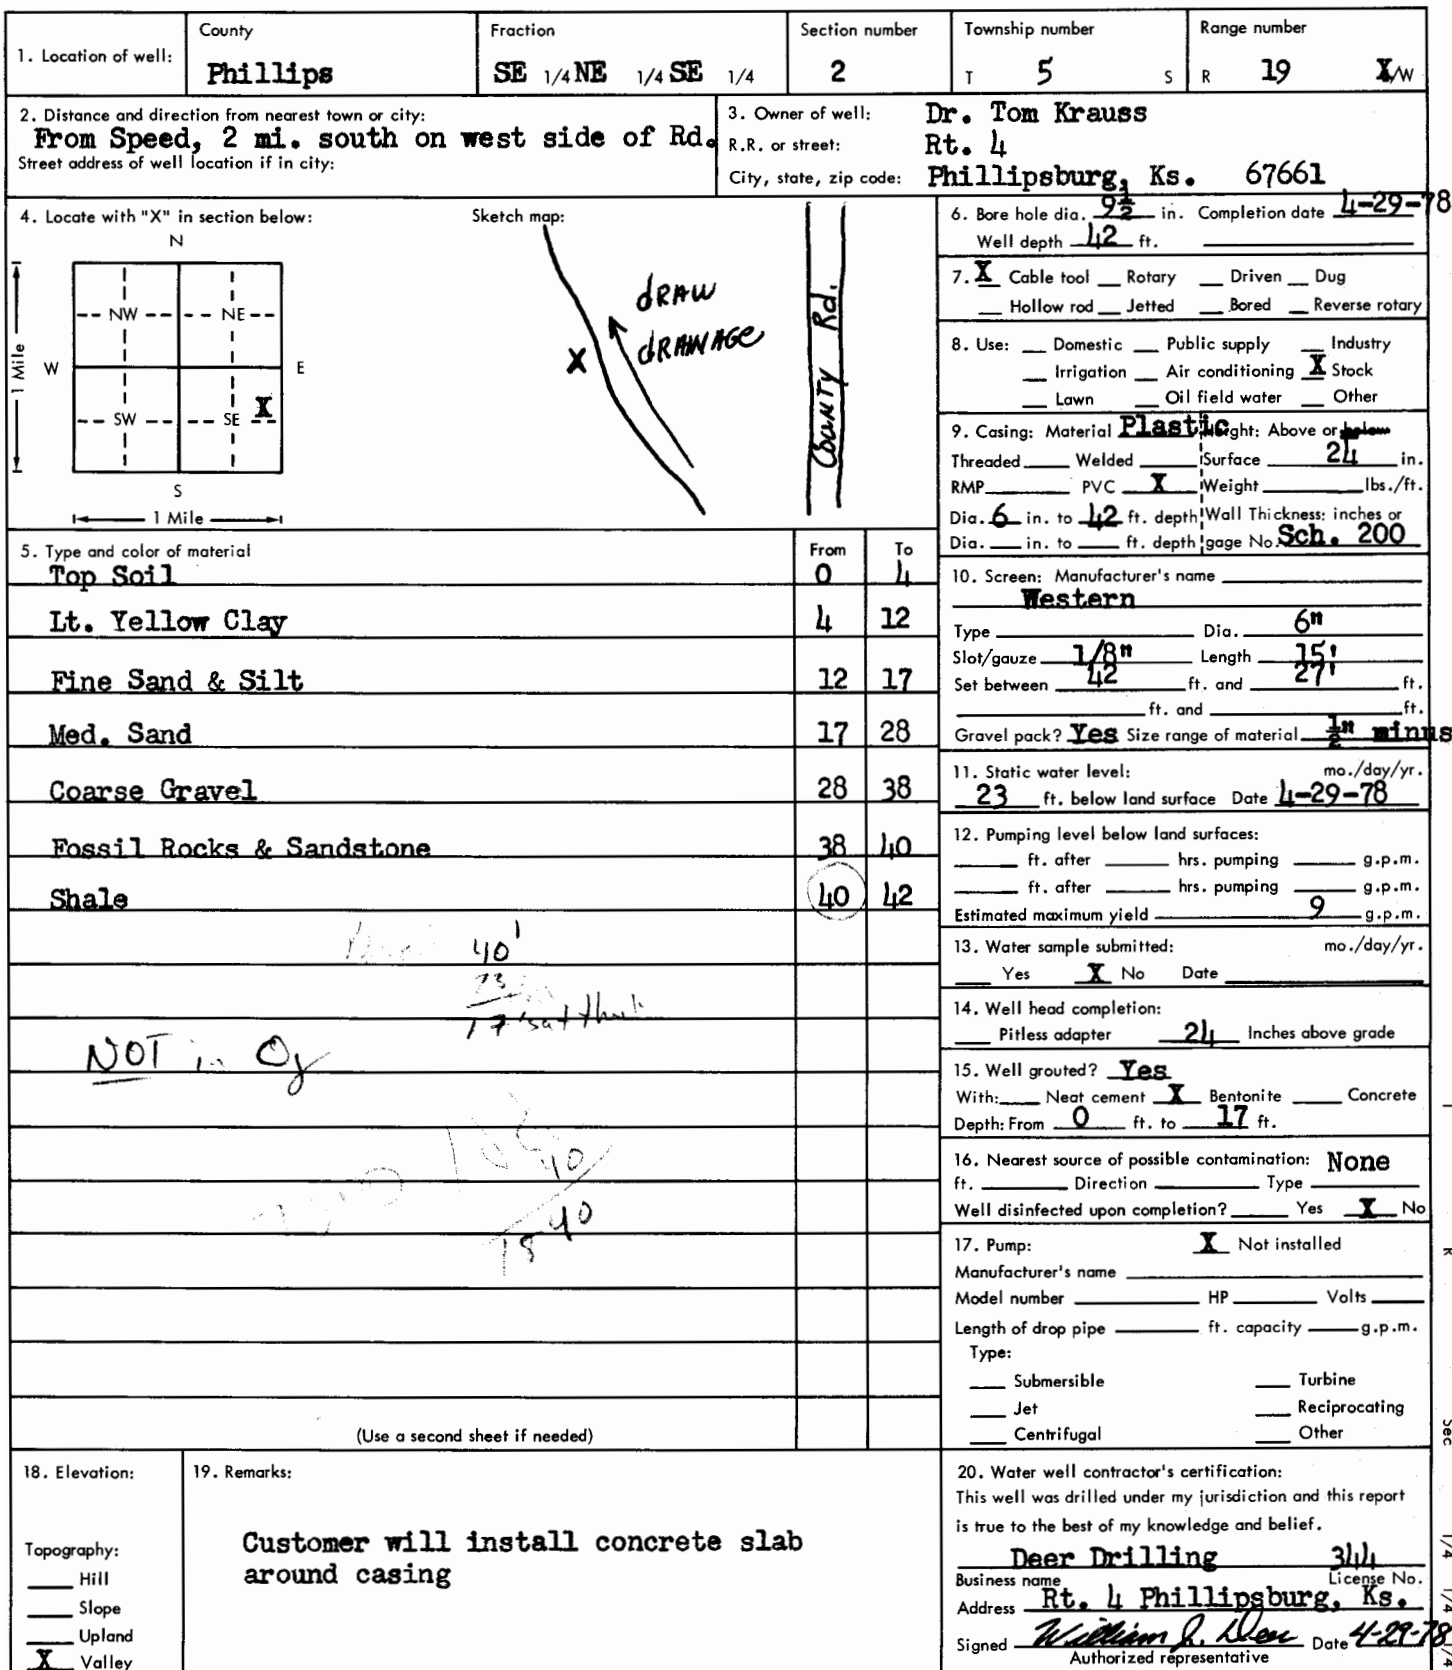 1. Location of well:
County
Phillips
Fraction
SE 1/4 NE 1/4 SE 1/4
Section number
2
Township number
T 5 S
Range number
R 19 X/W
2. Distance and direction from nearest town or city:
From Speed, 2 mi. south on west side of Rd.
Street address of well location if in city:
3. Owner of well: Dr. Tom Krauss
R.R. or street: Rt. 4
City, state, zip code: Phillipsburg, Ks. 67661
4. Locate with "X" in section below:
N
NW NE
W E
SW SE X
S
1 Mile
1 Mile
Sketch map:
dRAW
dRAWAGE
X
County Rd.
6. Bore hole dia. 9 1/2 in. Completion date 4-29-78
Well depth 42 ft.
7. X Cable tool Rotary Driven Dug
Hollow rod Jetted Bored Reverse rotary
8. Use: Domestic Public supply Industry
Irrigation Air conditioning X Stock
Lawn Oil field water Other
9. Casing: Material Plastic Height: Above or below
Threaded Welded Surface 24 in.
RMP PVC X Weight lbs./ft.
Dia. 6 in. to 42 ft. depth Wall Thickness: inches or
Dia. in. to ft. depth gage No. Sch. 200
5. Type and color of material From To
Top Soil 0 4
Lt. Yellow Clay 4 12
Fine Sand & Silt 12 17
Med. Sand 17 28
Coarse Gravel 28 38
Fossil Rocks & Sandstone 38 40
Shale 40 42
40'
23
17' sat thick
NOT in Og
40
40
18
(Use a second sheet if needed)
10. Screen: Manufacturer's name
Western
Type Dia. 6"
Slot/gauze 1/8" Length 15'
Set between 42 ft. and 27' ft.
ft. and ft.
Gravel pack? Yes Size range of material 1/2" minus
11. Static water level: mo./day/yr.
23 ft. below land surface Date 4-29-78
12. Pumping level below land surfaces:
ft. after hrs. pumping g.p.m.
ft. after hrs. pumping g.p.m.
Estimated maximum yield 9 g.p.m.
13. Water sample submitted: mo./day/yr.
Yes X No Date
14. Well head completion:
Pitless adapter 24 Inches above grade
15. Well grouted? Yes
With: Neat cement X Bentonite Concrete
Depth: From 0 ft. to 17 ft.
16. Nearest source of possible contamination: None
ft. Direction Type
Well disinfected upon completion? Yes X No
17. Pump: X Not installed
Manufacturer's name
Model number HP Volts
Length of drop pipe ft. capacity g.p.m.
Type:
Submersible Turbine
Jet Reciprocating
Centrifugal Other
18. Elevation:
Topography:
Hill
Slope
Upland
X Valley
19. Remarks:
Customer will install concrete slab
around casing
20. Water well contractor's certification:
This well was drilled under my jurisdiction and this report
is true to the best of my knowledge and belief.
Deer Drilling 344
Business name License No.
Address Rt. 4 Phillipsburg, Ks.
Signed William J. Deer Date 4-29-78
Authorized representative
Sec
1/4 1/4 1/4